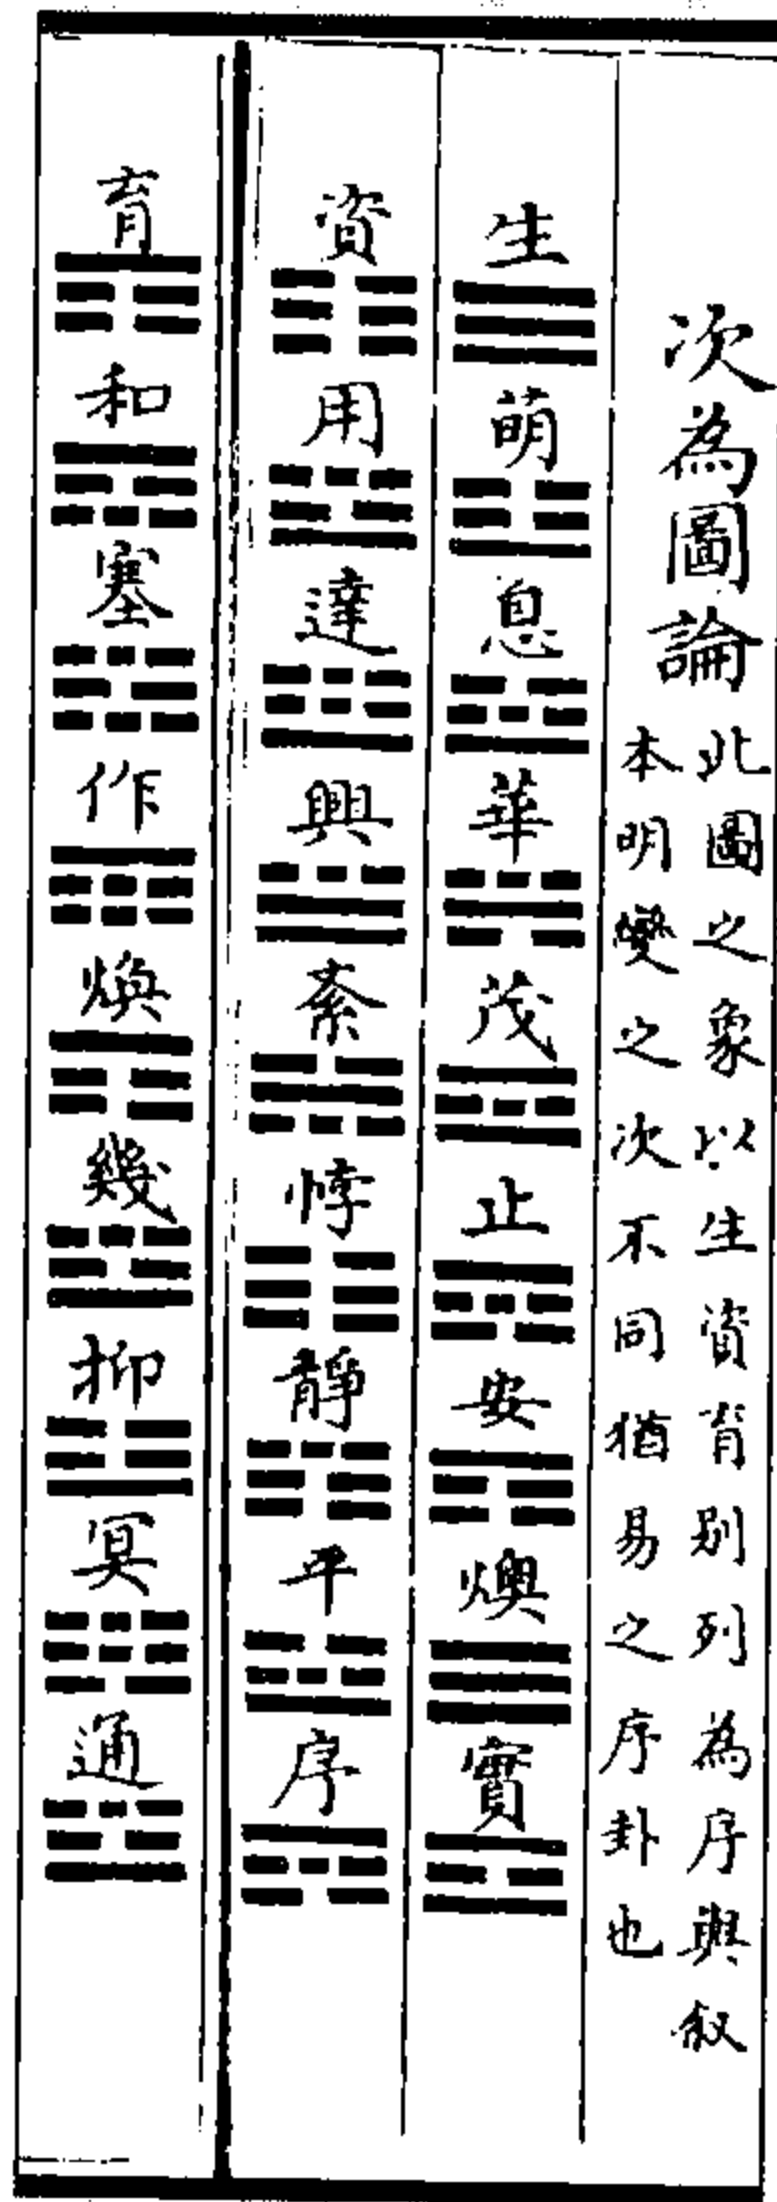 次為圖論
此圖之象以生資育别列為序與叙
本明變之次不同猶易之序卦也
生 萌 息 華 茂 止 安 燠 實
資 用 達 興 紊 悖 靜 平 序
育 和 塞 作 煥 幾 抑 冥 通